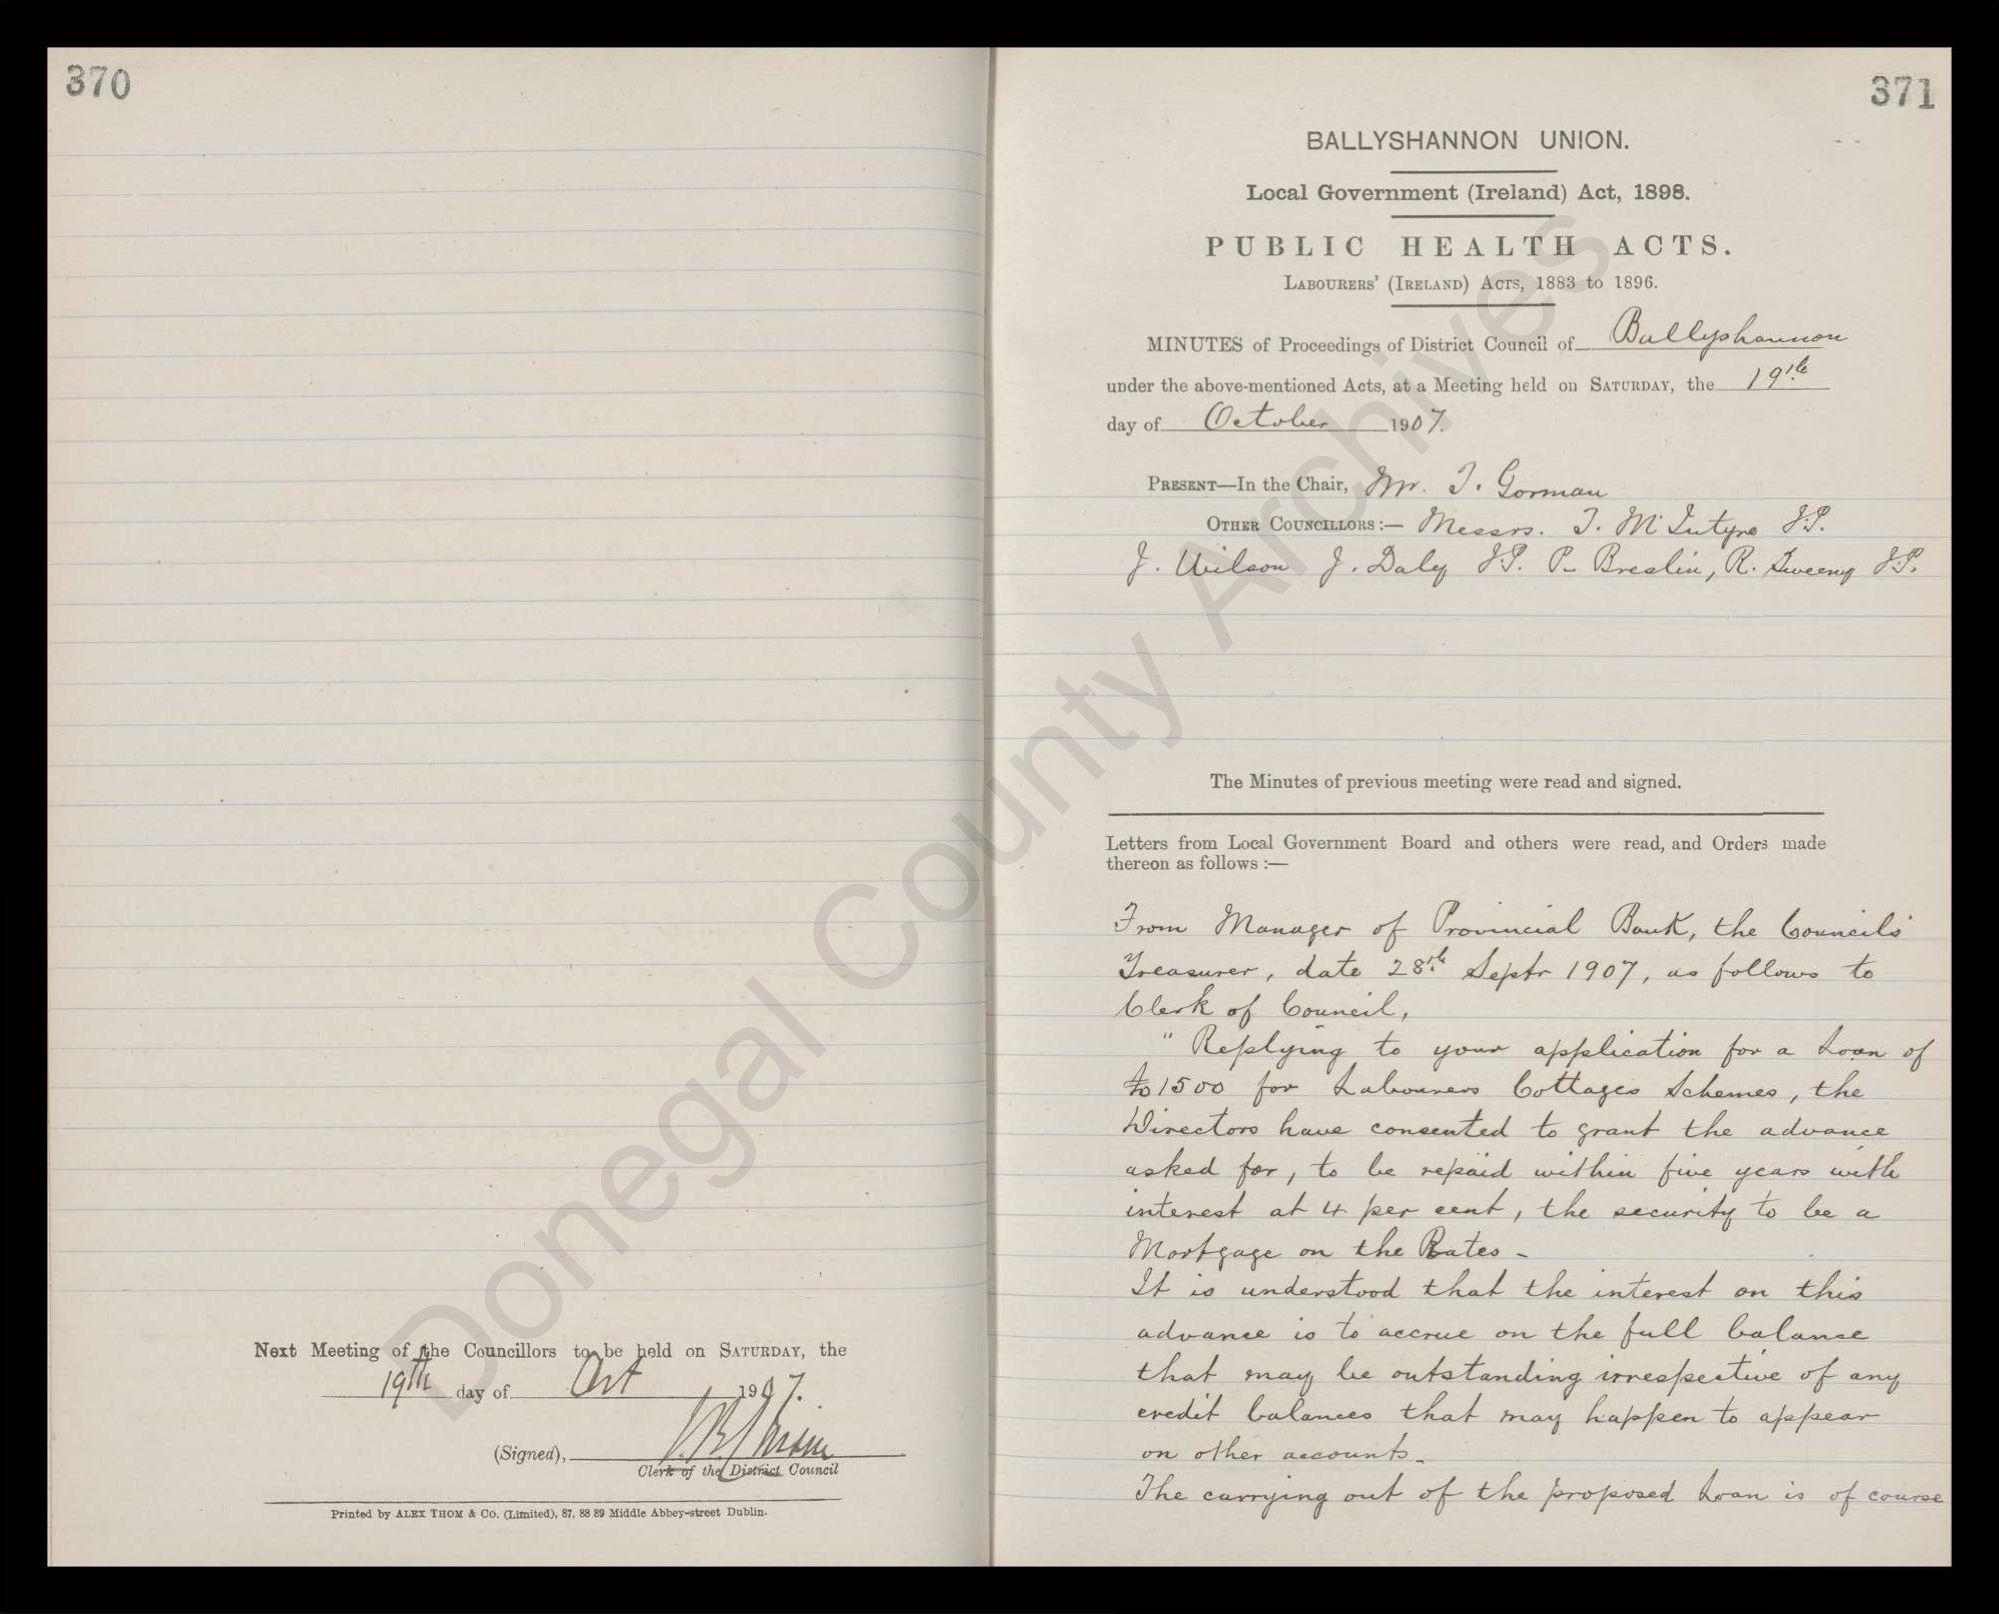 370
Next Meeting of the Councillors to be held on SATURDAY, the
19th day of Oct 1907.
(Signed),
Clerk of the District Council
Printed by ALEX THOM & Co. (Limited), 87, 88 89 Middle Abbey-street Dublin.
371
BALLYSHANNON UNION.
Local Government (Ireland) Act, 1898.
PUBLIC HEALTH ACTS.
LABOURERS' (IRELAND) ACTS, 1883 to 1896.
MINUTES of Proceedings of District Council of Ballyshannon
under the above-mentioned Acts, at a Meeting held on SATURDAY, the 19th
day of October 1907.
PRESENT—In the Chair, Mr. T. Gorman
OTHER COUNCILLORS:— Messrs. T. McIntyre J.P.
J. Wilson J. Daly J.P. P. Breslin, R. Sweeny J.P.
The Minutes of previous meeting were read and signed.
Letters from Local Government Board and others were read, and Orders made
thereon as follows:—
From Manager of Provincial Bank, the Councils
Treasurer, date 28th Septr 1907, as follows to
Clerk of Council,
" Replying to your application for a Loan of
£1500 for Labourers Cottages Schemes, the
Directors have consented to grant the advance
asked for, to be repaid within five years with
interest at 4 per cent, the security to be a
Mortgage on the Rates -
It is understood that the interest on this
advance is to accrue on the full balance
that may be outstanding irrespective of any
credit balances that may happen to appear
on other accounts.
The carrying out of the proposed Loan is of course
Donegal County Archives